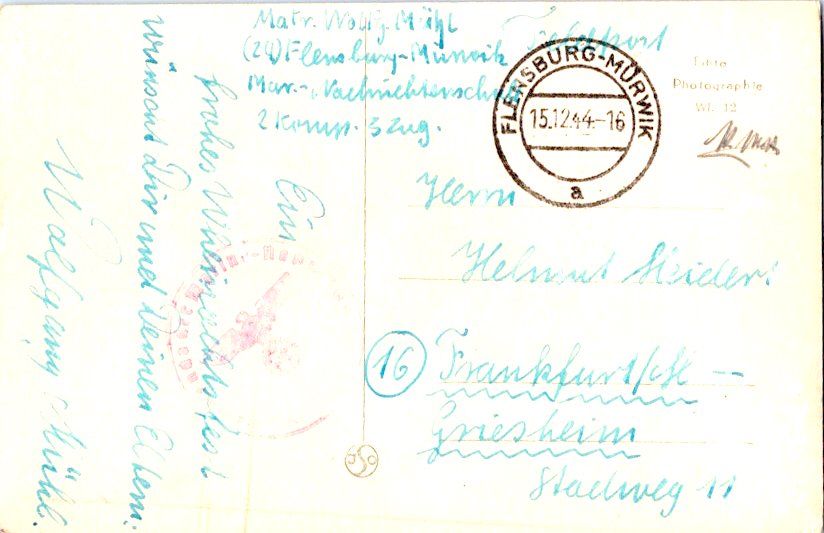 Matr. Wolfg. Mühl
(24) Flensburg-Mürwik
Mar.-Nachrichtenschule
2 Komp. 3 Zug.
Feldpost
FLENSBURG-MÜRWIK
15.12.44.-16
a
Echte
Photographie
Herrn
Helmut
16 Frankfurt/M --
Griesheim
Stadweg 11
Ein
frohes Weihnachtsfest
wünscht Dir und Deinen Eltern:
Wolfgang Mühl.